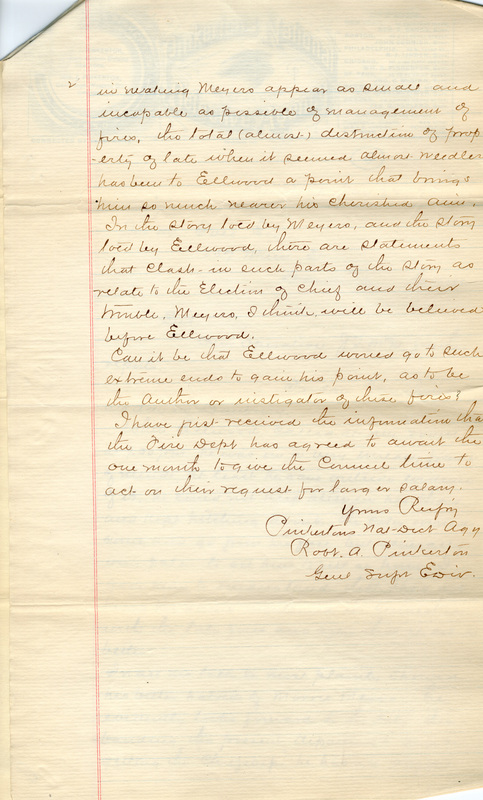 2
in making Meyers appear as small and
incapable as possible of management of
fires, the total (almost) distruction of prop
-erty of late when it seemed almost needles
has been to Ellwood a point that brings
him so much nearer his cherished aim.
In the story told by Meyers, and the story
told by Ellwood, there are statements
that clash in such parts of the story as
relate to the Election of Chief and their
trouble. Meyers, I think, will be believed
before Ellwood.
Can it be that Ellwood would go to such
extreme ends to gain his point, as to be
the Author or instigator of these fires?
I have just received the information tha
the Fire Dept has agreed to await the
one month to give the Council time to
act on their request for larger salary.
Yours Respy
Pinkertons Nat-Dect Agy
Robt. A. Pinkerton
Genl Supt E Div.